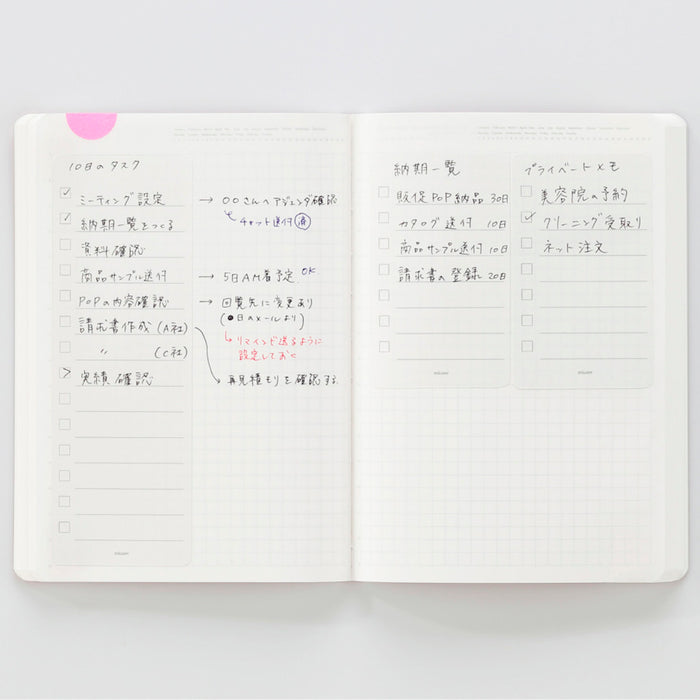 10日のタスク
ミーティング設定
→ ○○さんへアジェンダ確認
チャット送付 済
納期一覧をつくる
資料確認
商品サンプル送付
→ 5日AM着予定。OK
POPの内容確認
→ 回覧先に変更あり
(●日のメールより)
リマインド送るように
設定しておく
請求書作成(A社)
〃 (C社)
→ 再見積もりを確認する。
実績確認
納期一覧
販促POP納品 30日
カタログ送付 10日
商品サンプル送付 10日
請求書の登録 20日
プライベートメモ
美容院の予約
クリーニング受取り
ネット注文